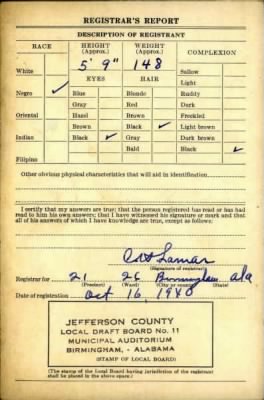 REGISTRAR'S REPORT
DESCRIPTION OF REGISTRANT
RACE HEIGHT (Approx.) WEIGHT (Approx.) COMPLEXION
5' 9" 148
White Sallow
EYES HAIR Light
Negro ✓ Blue Blonde Ruddy
Gray Red Dark
Oriental Hazel Brown Freckled
Brown Black ✓ Light brown
Indian Black ✓ Gray Dark brown
Bald Black ✓
Filipino
Other obvious physical characteristics that will aid in identification
I certify that my answers are true; that the person registered has read or has had
read to him his own answers; that I have witnessed his signature or mark and that
all of his answers of which I have knowledge are true, except as follows:
Lamar
(Signature of registrar)
Registrar for 21 26 Birmingham ala
(Precinct) (Ward) (City or county) (State)
Date of registration Oct 16, 1940
JEFFERSON COUNTY
LOCAL DRAFT BOARD No. 11
MUNICIPAL AUDITORIUM
BIRMINGHAM, - ALABAMA
(STAMP OF LOCAL BOARD)
(The stamp of the Local Board having jurisdiction of the registrant
shall be placed in the above space.)